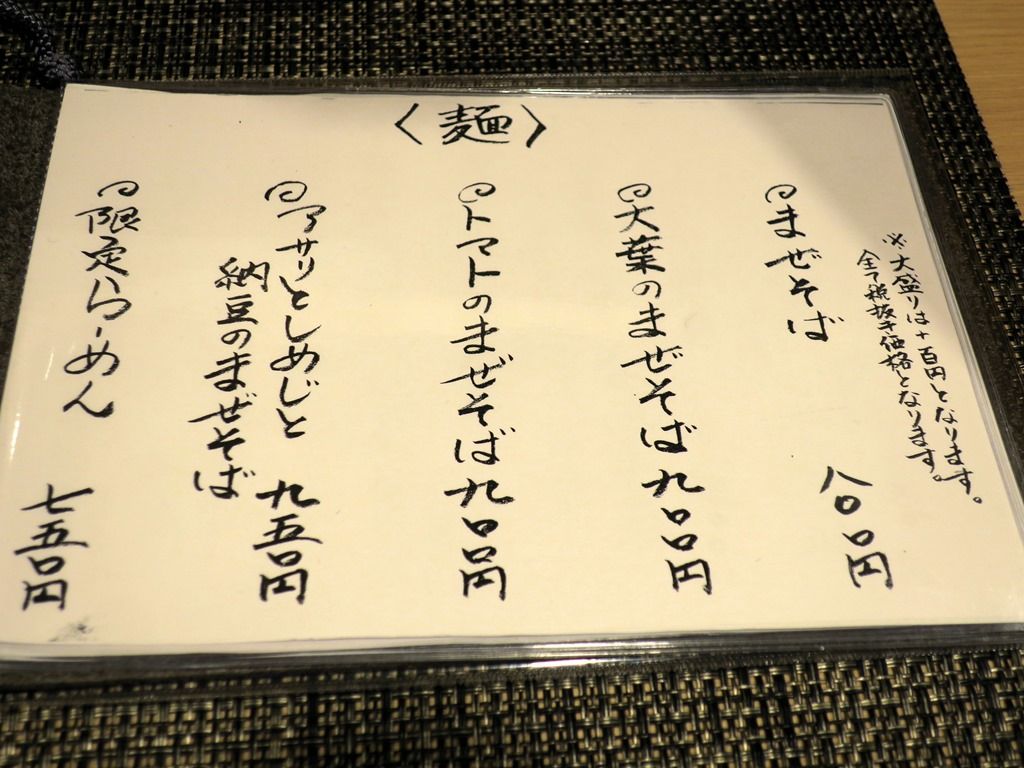 〈麺〉
※大盛りは+百円となります。
全て税抜き価格となります。
まぜそば 八〇〇円
大葉のまぜそば 九〇〇円
トマトのまぜそば 九〇〇円
アサリとしめじと
納豆のまぜそば 九五〇円
限定らーめん 七五〇円